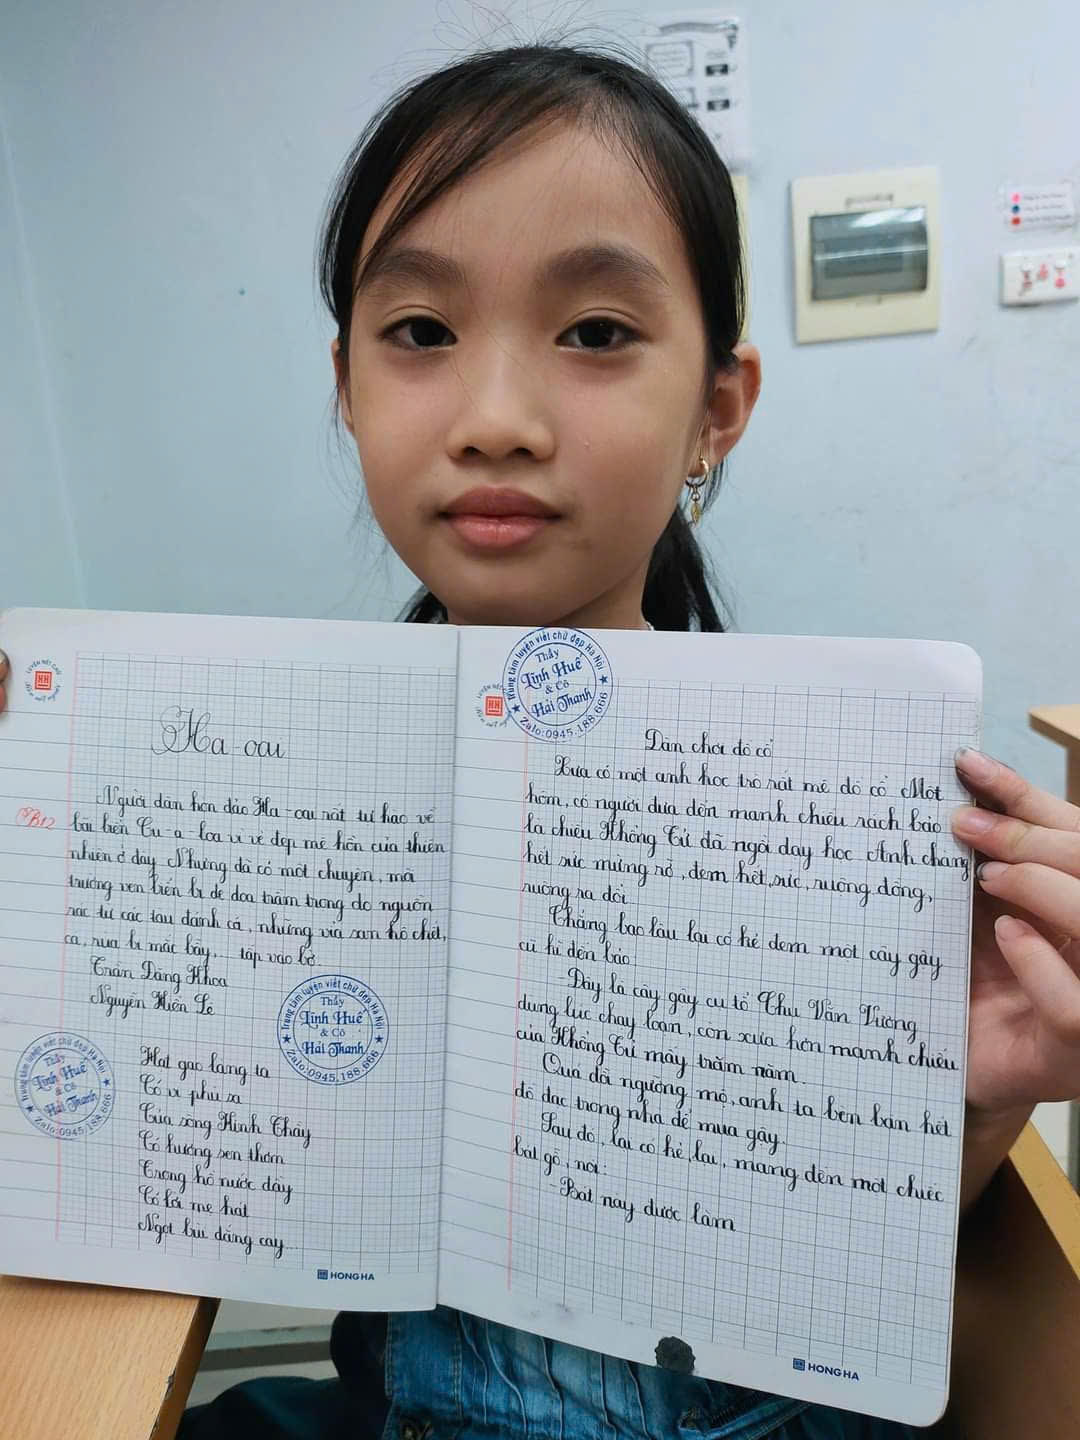 Ha-oai
Người dân hòn đảo Ha-oai rất tự hào về
B12
bãi biển Cu-a-loa vì vẻ đẹp mê hồn của thiên
nhiên ở đây. Nhưng đã có một chuyện, môi
trường ven biển bị đe dọa trầm trọng do nguồn
rác từ các tàu đánh cá, những vỉa san hô chết,
cá, rùa bị mắc bẫy,... tấp vào bờ.
Trần Đăng Khoa
Nguyễn Hiến Lê
Hạt gạo làng ta
Có vị phù sa
Của sông Kinh Thầy
Có hương sen thơm
Trong hồ nước đầy
Có lời mẹ hát
Ngọt bùi đắng cay...
HONG HA
Trung tâm luyện viết chữ đẹp Hà Nội
Thầy
Linh Huế
& Cô
Hải Thanh
Zalo:0945.188.666
Trung tâm luyện viết chữ đẹp Hà Nội
Thầy
Linh Huế
& Cô
Hải Thanh
Zalo:0945.188.666
Trung tâm luyện viết chữ đẹp Hà Nội
Thầy
Linh Huế
& Cô
Hải Thanh
Zalo:0945.188.666
Dân chơi đồ cổ
Xưa có một anh học trò rất mê đồ cổ. Một
hôm, có người đưa đến manh chiếu rách bảo
là chiếu Khổng Tử đã ngồi dạy học. Anh chàng
hết sức mừng rỡ, đem hết sức, ruộng đồng,
ruộng ra đổi.
Chẳng bao lâu lại có kẻ đem một cây gậy
cũ kĩ đến bảo:
-Đây là cây gậy cụ tổ Chu Văn Vương
dùng lúc chạy loạn, còn xưa hơn manh chiếu
của Khổng Tử mấy trăm năm.
Quá đỗi ngưỡng mộ, anh ta bèn bán hết
đồ đạc trong nhà để mua gậy.
Sau đó, lại có kẻ, lại, mang đến một chiếc
bát gỗ, nói:
-Bát này được làm
HONG HA